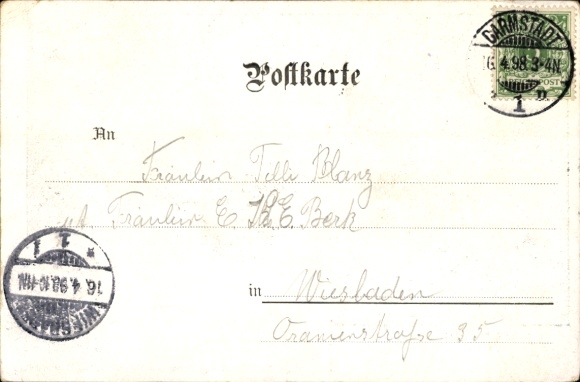 DARMSTADT
16.4.98.3-4N.
1
Postkarte
An
Fräulein Tilli Blanz
Fräulein E. Berk
WIESBADEN
16.4.98.10-11N.
1
in Wiesbaden
Oranienstrasse 35